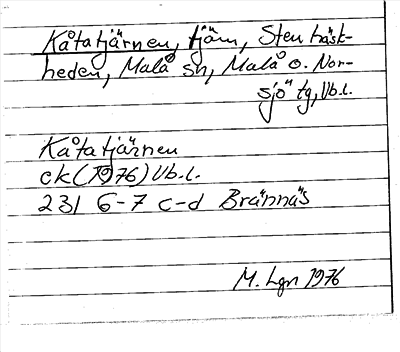 Kåtatjärnen, tjärn, Stenträsk-
heden, Malå sn, Malå o. Nor-
sjö tg, Vb.l.
Kåtatjärnen
ek (1976) Vb.l.
231 6-7 c-d Brännäs
M. Lgn 1976